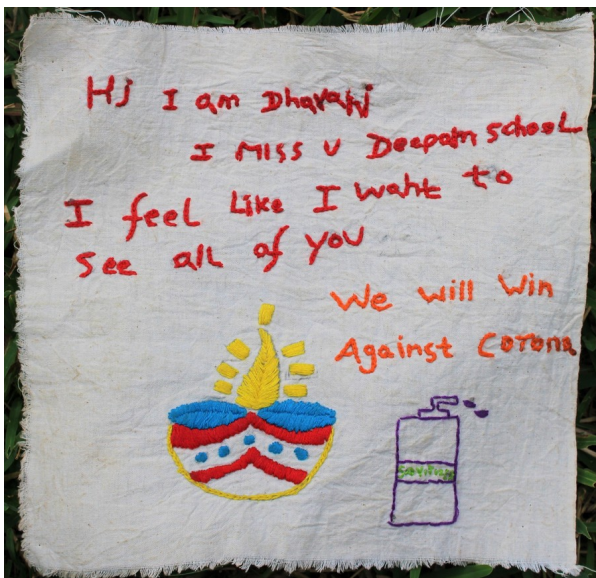 Hi I am Dharani
I Miss U Deepam School
I feel Like I want to
See all of you
We will Win
Against Corona